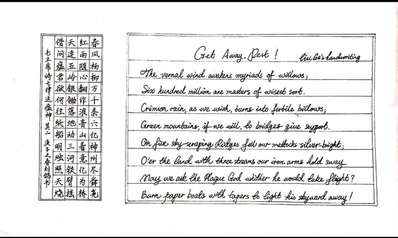 春风杨柳万千条六亿神州尽舜尧
红雨随心翻作浪青山着意化为桥
天连五岭银锄落地动三河铁臂摇
借问瘟君欲何往纸船明烛照天烧
七律送瘟神 其二
Get Away, Pest !
handwriting
The vernal wind awakens myriads of willows;
Six hundred million are masters of wisest sort.
Crimson rain, as we wish, turns into fertile billows;
Green mountains, if we will, to bridges give support.
On five sky-scraping Ridges fall our mattocks silver-bright;
O'er the land with three streams our iron arms hold sway
May we ask the Plague God whither he would take flight?
Burn paper boats with tapers to light his skyward away!